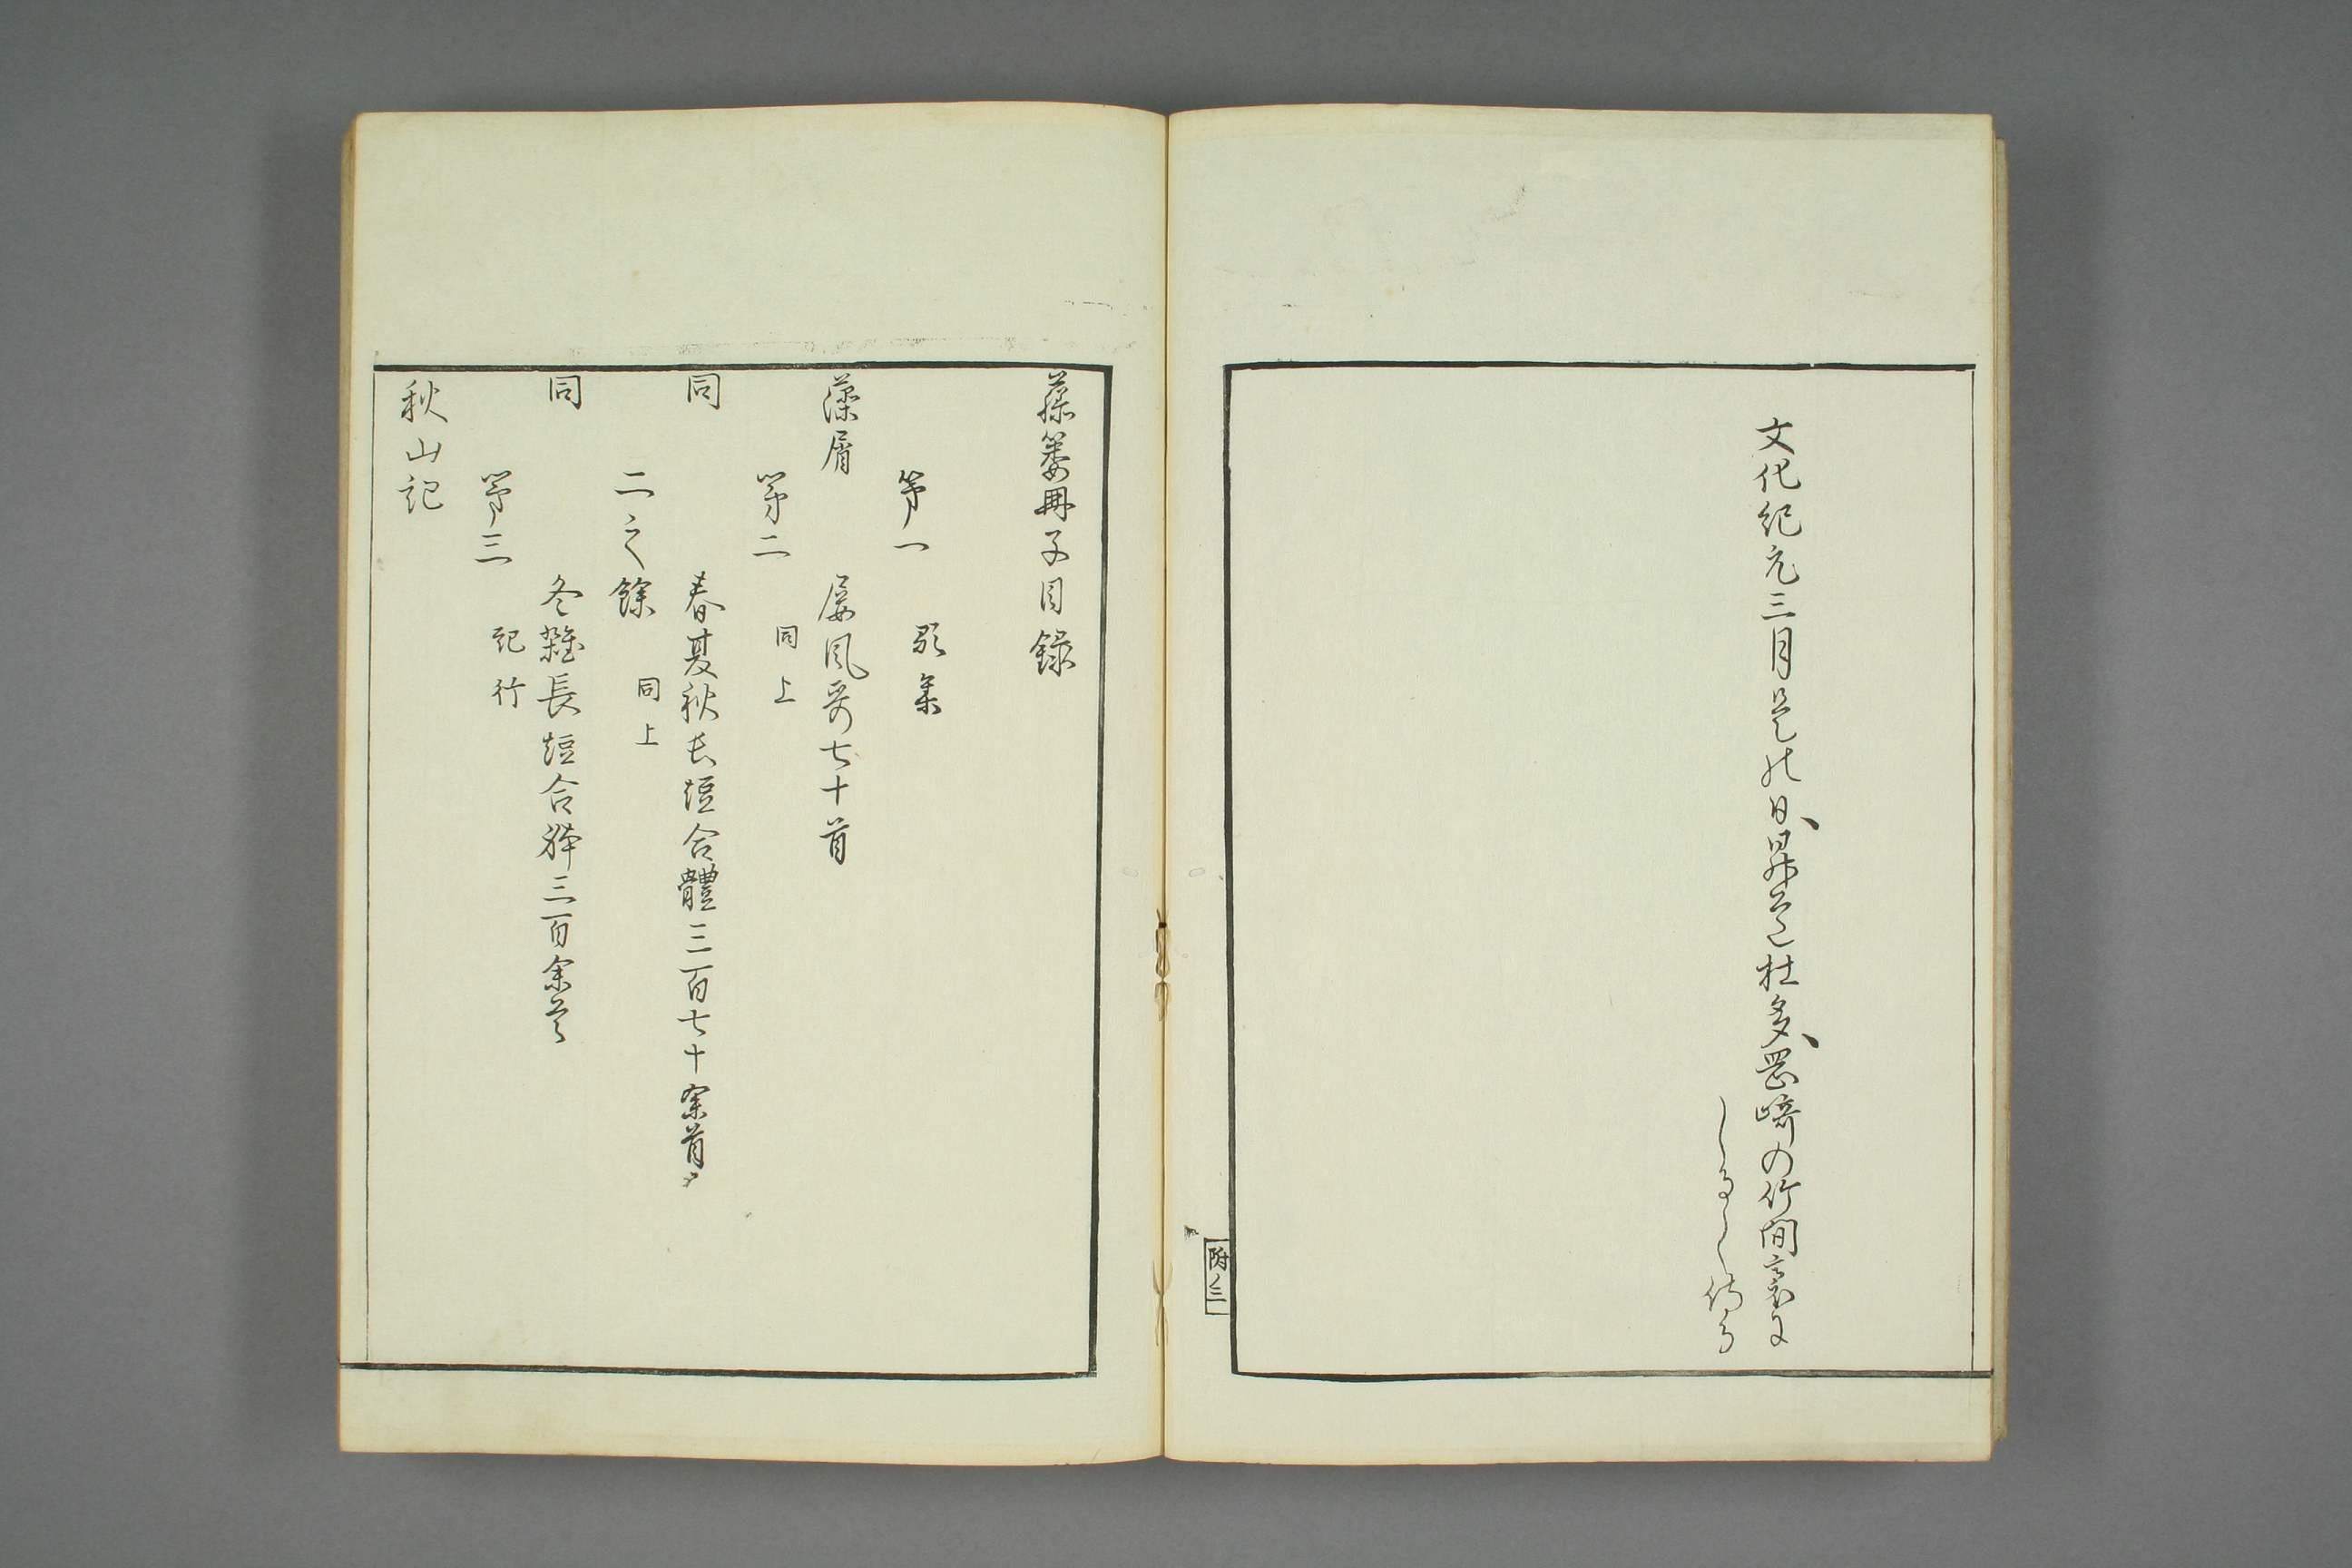 文化紀元三月望の日、昇道杜多、岡崎の竹間裏に
しるし侍る
附ノ三
藤簍冊子目録
第一 歌集
藻屑 屏風哥七十首
第二 同上
同 春夏秋長短合體三百七十余首
二之餘 同上
同 冬雑長短合躰三百余首
第三 紀行
秋山記